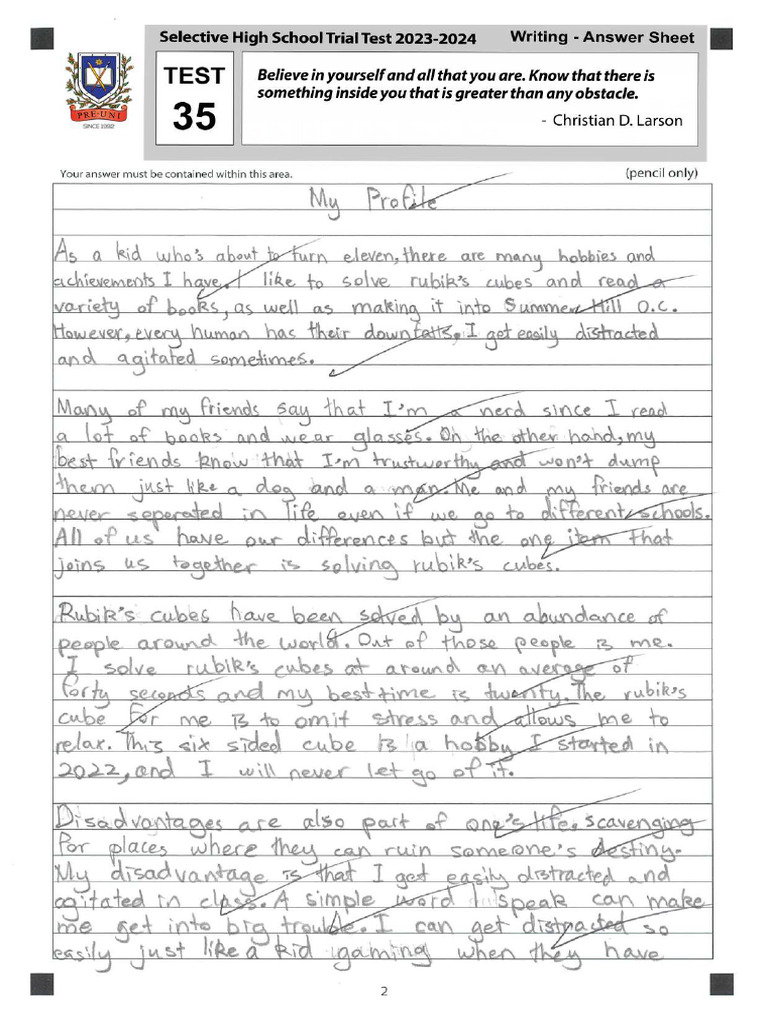 Selective High School Trial Test 2023-2024 Writing - Answer Sheet
PRE-UNI
SINCE 1992
TEST
35
Believe in yourself and all that you are. Know that there is
something inside you that is greater than any obstacle.
- Christian D. Larson
Your answer must be contained within this area. (pencil only)
My Profile
As a kid who's about to turn eleven, there are many hobbies and
achievements I have. I like to solve rubik's cubes and read a
variety of books, as well as making it into Summer Hill O.C.
However, every human has their downfalls. I get easily distracted
and agitated sometimes.
Many of my friends say that I'm a nerd since I read
a lot of books and wear glasses. On the other hand, my
best friends know that I'm trustworthy and won't dump
them just like a dog and a man. Me and my friends are
never seperated in life even if we go to different schools.
All of us have our differences but the one item that
joins us together is solving rubik's cubes.
Rubik's cubes have been solved by an abundance of
people around the world. Out of those people is me.
I solve rubik's cubes at around an average of
forty seconds and my best time is twenty. The rubik's
cube for me is to omit stress and allows me to
relax. This six sided cube is a hobby I started in
2022, and I will never let go of it.
Disadvantages are also part of one's life. scavenging
for places where they can ruin someone's destiny.
My disadvantage is that I get easily distracted and
agitated in class. A simple word I speak can make
me get into big trouble. I can get distracted so
easily just like a kid gaming when they have
2